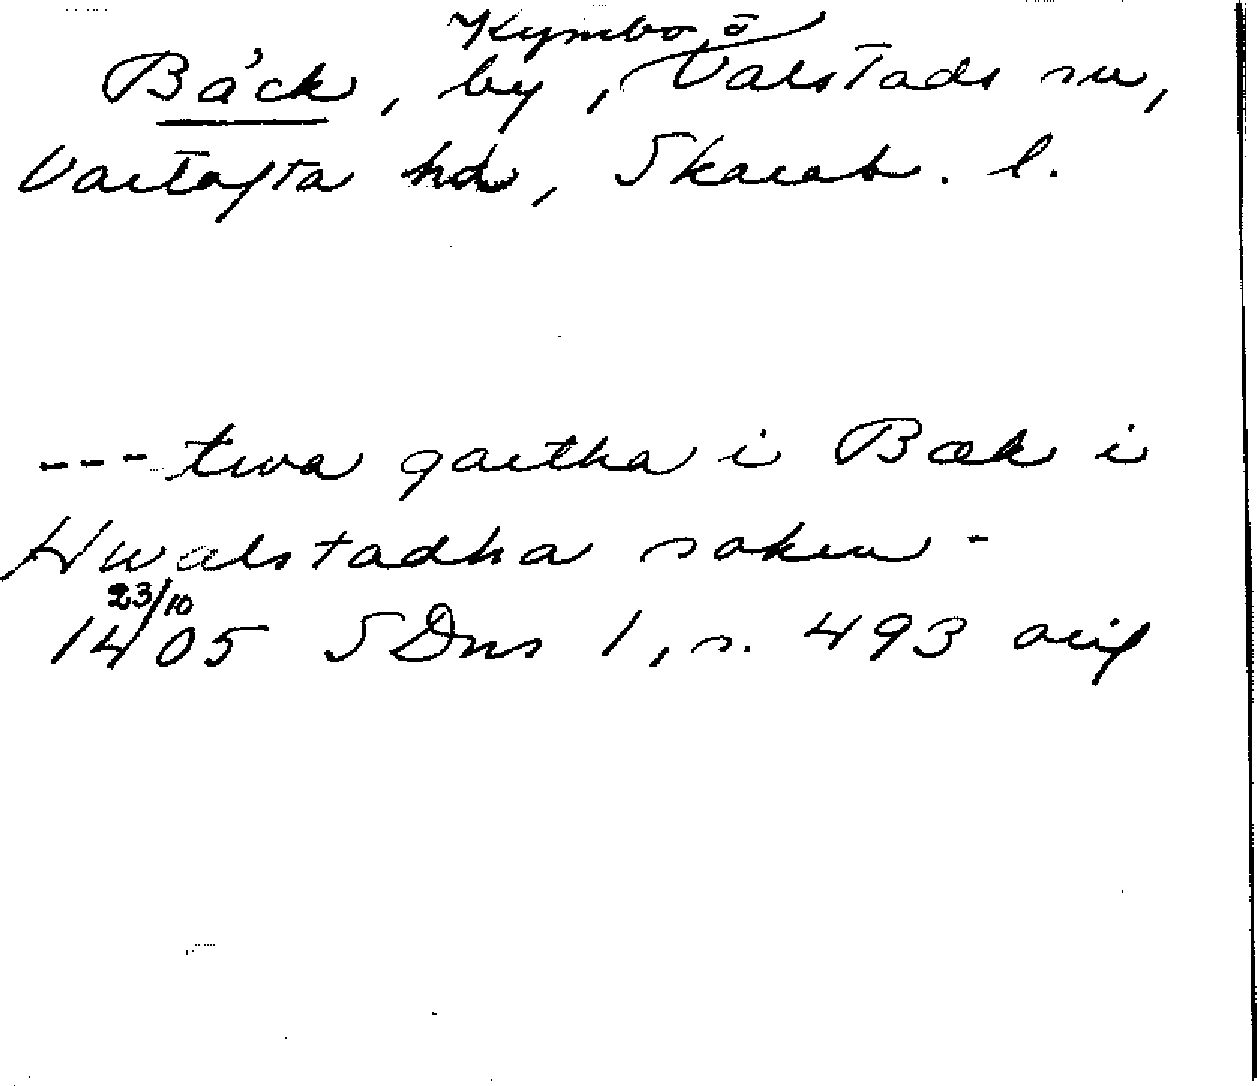 Kymbo, ö
Bäck, by, Valstads sn,
Vartofta hd, Skarab. l.
--- twa gartha i Bæk i
Hwalstadha sokn -
23/10
1405 SDns 1, s. 493 orig